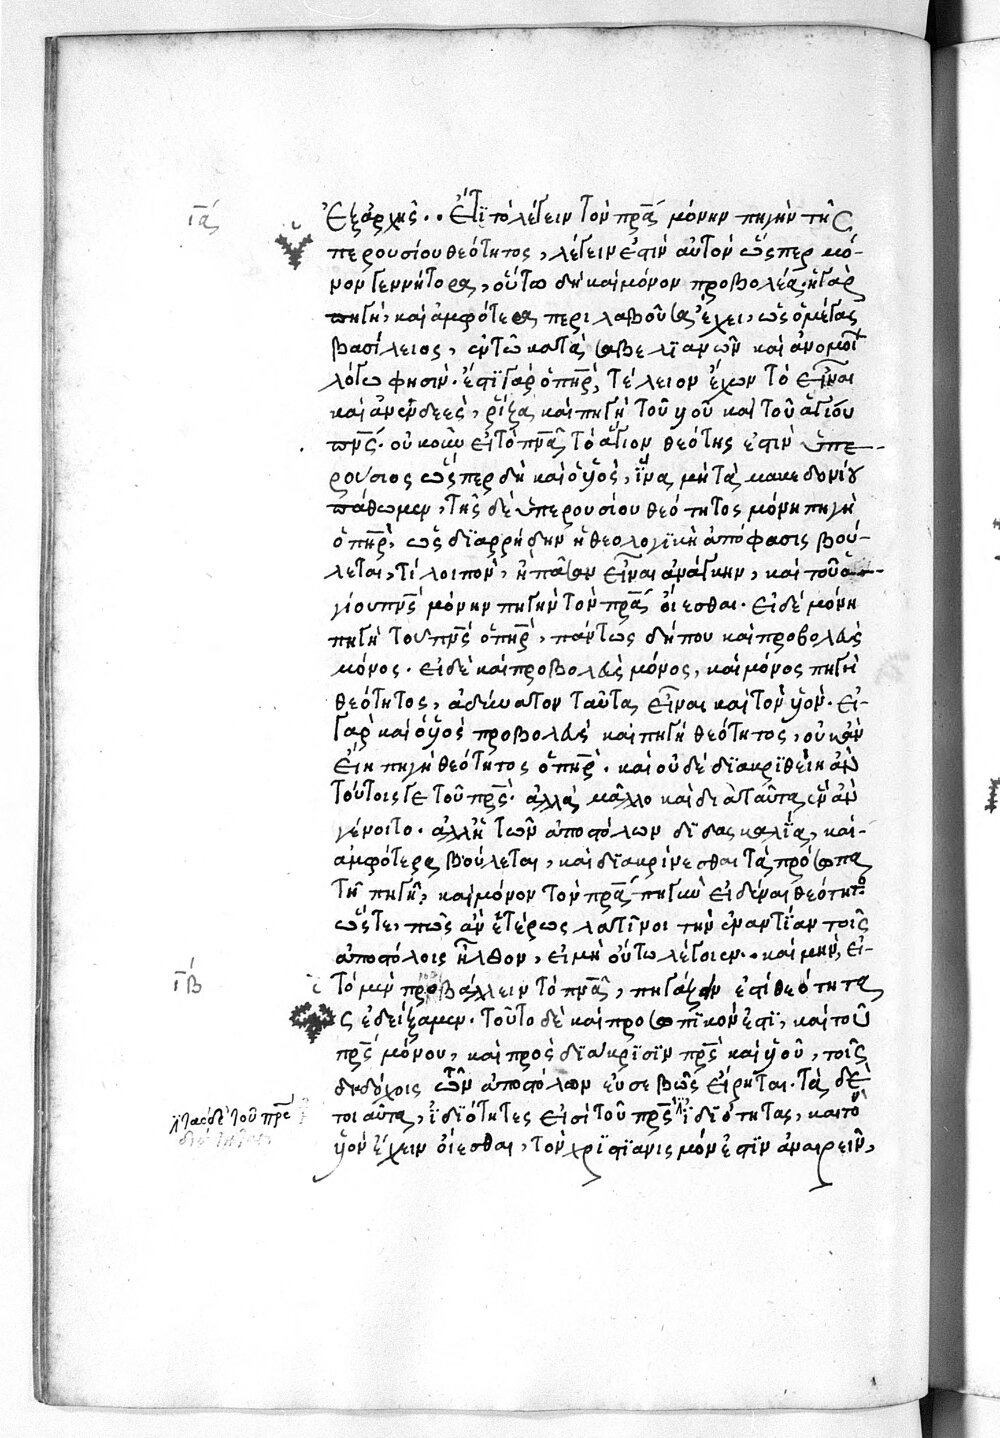 ια
ἐξαρχῆς·. Ἔτι τὸ λέγειν τὸν πρ̅α μόνην πηγὴν τῆς
ὑπερουσίου θεότητος, λέγειν ἐστὶν αὐτὸν ὥσπερ μό-
νον γεννήτορα, οὕτω δὴ καὶ μόνον προβολέα· ἡ γὰρ
πηγὴ, καὶ ἀμφότερα περιλαβοῦσα ἔχει, ὡς ὁ μέγας
βασίλειος, ἐν τῶ κατὰ σαβελϊανῶν καὶ ἀνομοί
λόγω φησὶν· ἔστϊ γὰρ ὁ πη̅ρ, τέλειον ἔχων τὸ εἶναι
καὶ ἀνενδεὲς, ῥίζα καὶ πηγὴ τοῦ υἱοῦ καὶ τοῦ ἁγίου
πν̅ς· οὐκοῦν εἰ τὸ πν̅α τὸ ἅγιον θεότης ἐστὶν ὑπε-
ρούσιος ὥσπερ δὴ καὶ ὁ υἱὸς, ἵνα μὴ τὰ μακεδονίου
πάθωμεν, τῆς δὲ ὑπερουσίου θεότητος μόνη πηγὴ
ὁ πη̅ρ, ὡς διαρρήδην ἡ θεολογϊκὴ ἀπόφασις βού-
λεται, τί λοιπὸν, ἢ πᾶσαν εἶναι ἀνάγκην, καὶ τοῦ ἁ-
γίου πν̅ς μόνην πηγὴν τὸν πρ̅α οἴεσθαι· εἰ δὲ μόνη
πηγὴ τοῦ πν̅ς ὁ πη̅ρ, πάντως δήπου καὶ προβολεὺς
μόνος· εἰ δὲ καὶ προβολεὺς μόνος, καὶ μόνος πηγὴ
θεότητος, ἀδύνατον ταῦτα εἶναι καὶ τὸν υἱὸν· εἰ
γὰρ καὶ ὁ υἱὸς προβολεὺς καὶ πηγὴ θεότητος, οὐκ ἂν
εἴη πηγὴ θεότητος ὁ πη̅ρ· καὶ οὐδὲ διακριθείη ἂν
τούτοις γε τοῦ πρ̅ς· ἀλλὰ μᾶλλον καὶ διὰ ταῦτα ἓν ἂν
γένοιτο· ἀλλ' ἡ τῶν ἀποστόλων διδασκαλία, καὶ
ἀμφότερα βούλεται, καὶ διακρίνεσθαι τὰ πρόσωπα
τῆ πηγῆ, καὶ μόνον τὸν πρ̅α πηγὴν εἰδέναι θεότητο
ὥστε, πῶς ἂν ἑτέρως λατῖνοι τὴν ἐναντίαν τοῖς
ἀποστόλοις ἦλθον, εἰ μὴ οὕτω λέγοιεν·. καὶ μὴν, εἰ
ιβ
τὸ μὲν προβάλλειν τὸ πν̅α, πηγάζειν ἐστὶ θεότητα
ὡς ἐδείξαμεν· τοῦτο δὲ καὶ προσωπϊκόν ἐστϊ, καὶ τοῦ
πρ̅ς μόνου, καὶ πρὸς διάκρϊσϊν πρ̅ς καὶ υἱοῦ, τοῖς
διαδόχοις τῶν ἀποστόλων εὐσεβῶς εἴρηται· τὰ δὲ
τοιαῦτα, ἰδιότητες εἰσὶ τοῦ πρ̅ς ἰδιότητας, καὶ τὸν
υἱὸν ἔχειν οἴεσθαι, τὸν χρϊστϊανισμόν ἐστϊν ἀναιρεῖν,
τὰς δὲ τοῦ πρ̅ς